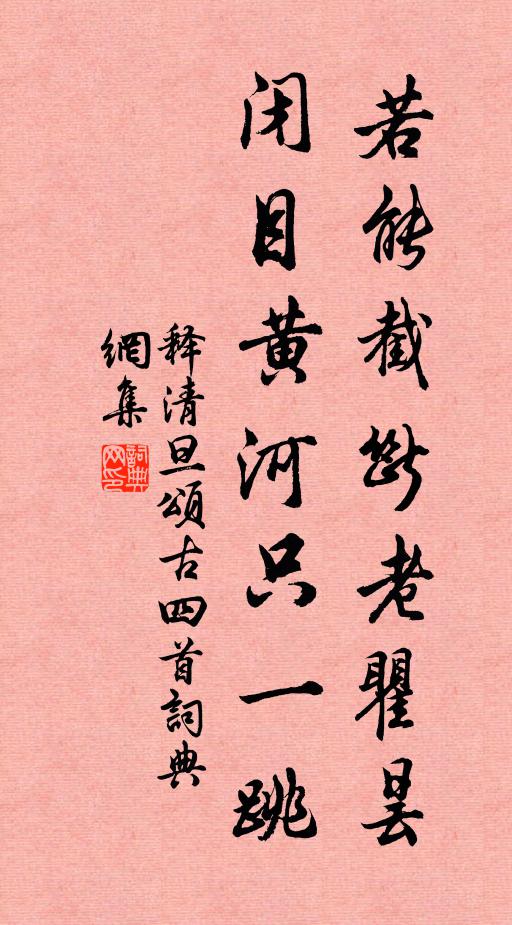 若能截断老瞿昙
闭目黄河只一跳
释清旦颂古四首詞典
網集
詞典
网印